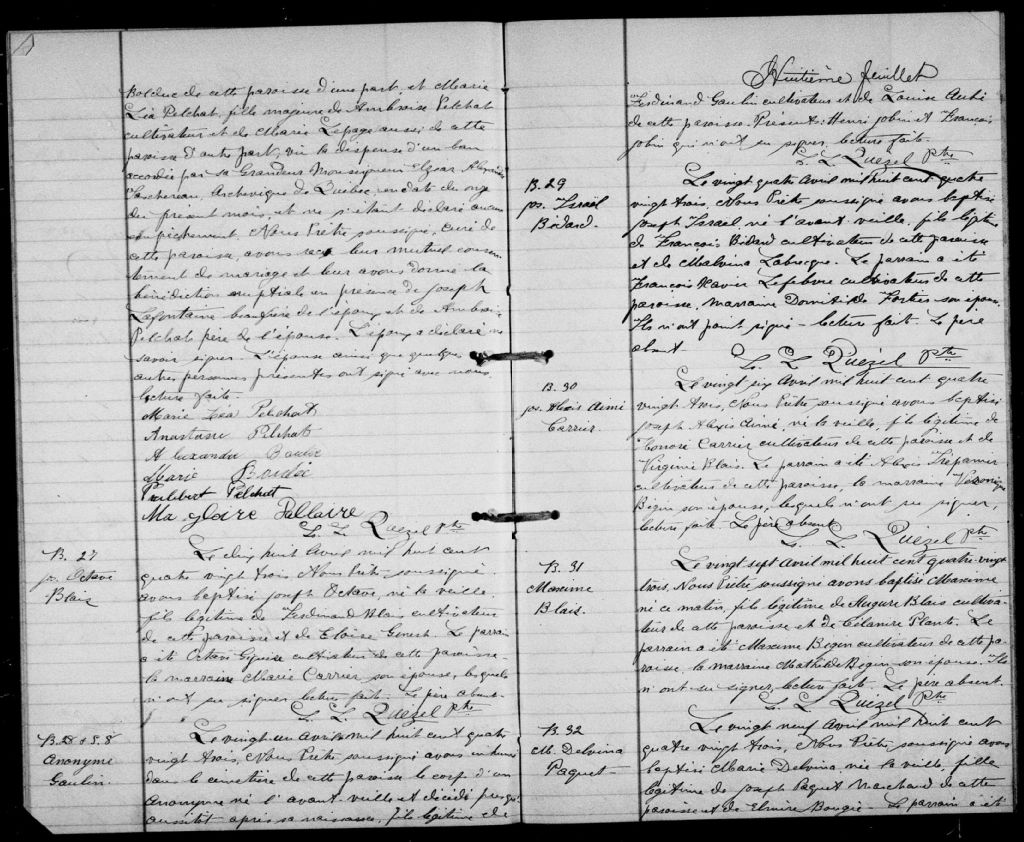 Bolduc de cette paroisse d'une part, et Marie
Léa Pelchat, fille majeure de Ambroise Pelchat
cultivateur et de Marie Lepage aussi de cette
paroisse d'autre part, vu la dispense d'un ban
accordée par sa Grandeur Monseigneur Elzéar Alexandre
Taschereau, Archevêque de Québec, en date du onze
du présent mois, et ne s'étant déclaré aucun
empêchement, Nous Prêtre soussigné, curé de
cette paroisse, avons reçu leur mutuel consen
tement de mariage et leur avons donné la
bénédiction nuptiale en présence de Joseph
Lafontaine beaufrère de l'époux, et de Ambroise
Pelchat père de l'épouse. L'époux a déclaré ne
savoir signer. L'épouse ainsi que quelques
autres personnes présentes ont signé avec nous
lecture faite.
Marie Léa Pelchat
Anastasie Pelchat
Alexandre
Marie
Philibert Pelchat
Ma gloire Dallaire
L. L. Quézel Ptre
B. 27
jos. Octave
Blais
Le dix huit Avril mil huit cent
quatre vingt trois Nous Prêtre soussigné
avons baptisé Joseph Octave, né la veille,
fils légitime de Ferdinand Blais cultivateur
de cette paroisse et de Eloise Genest. Le parrain
a été Octave Giguère cultivateur de cette paroisse
la marraine Marie Carrier son épouse, lesquels
n'ont su signer lecture faite. Le père absent.
L. L. Quézel Ptre
B. 28 & S. 8
Anonyme
Gaulin
Le vingt un Avril mil huit cent quatre
vingt trois, Nous Prêtre soussigné avons inhumé
dans le cimetière de cette paroisse le corps d'un
Anonyme né l'avant veille et décédé presqu'
aussitôt après sa naissance, fils légitime de
Huitième feuillet
Ferdinand Gaulin cultivateur et de Louise Aubé
de cette paroisse. Présents: Henri Jobin et François
Jobin qui n'ont su signer, lecture faite.
L. L. Quézel Ptre
B. 29
jos. Israël
Bédard.
Le vingt quatre Avril mil huit cent quatre
vingt trois, Nous Prêtre soussigné avons baptisé
Joseph Israël, né l'avant veille, fils légitime
de François Bédard cultivateur de cette paroisse
et de Malvina Labrecque. Le parrain a été
François Xavier Lefebvre cultivateur de cette
paroisse, marraine Domitilde Fortier son épouse.
Ils n'ont point signé - lecture faite. Le père
absent.
L. L. Quézel Ptre
B. 30
jos. Alexis Aimé
Carrier.
Le vingt six Avril mil huit cent quatre
vingt trois, Nous Prêtre soussigné avons baptisé
Joseph Alexis Aimé, né la veille, fils légitime de
Honoré Carrier cultivateur de cette paroisse et de
Virginie Blais. Le parrain a été Alexis Trépanier
cultivateur de cette paroisse, la marraine Véronique
Bégin son épouse, lesquels n'ont su signer,
lecture faite. Le père absent.
L. L. Quézel Ptre
B. 31
Maxime
Blais.
Le vingt sept Avril mil huit cent quatre-vingt
trois, Nous Prêtre soussigné avons baptisé Maxime
né ce matin, fils légitime de Magure Blais cultiva-
teur de cette paroisse et de Célanire Plante. Le
parrain a été Maxime Bégin cultivateur de cette pa-
roisse la marraine Mathilde Bégin son épouse. Ils
n'ont su signer, lecture faite. Le père absent.
L. L. Quézel Ptre
B. 32
M. Delvina
Paquet
Le vingt neuf Avril mil huit cent
quatre vingt trois, Nous Prêtre soussigné avons
baptisé Marie Delvina née la veille, fille
légitime de Joseph Paquet Marchand de cette
paroisse et de Elmire Bougie - Le parrain a été